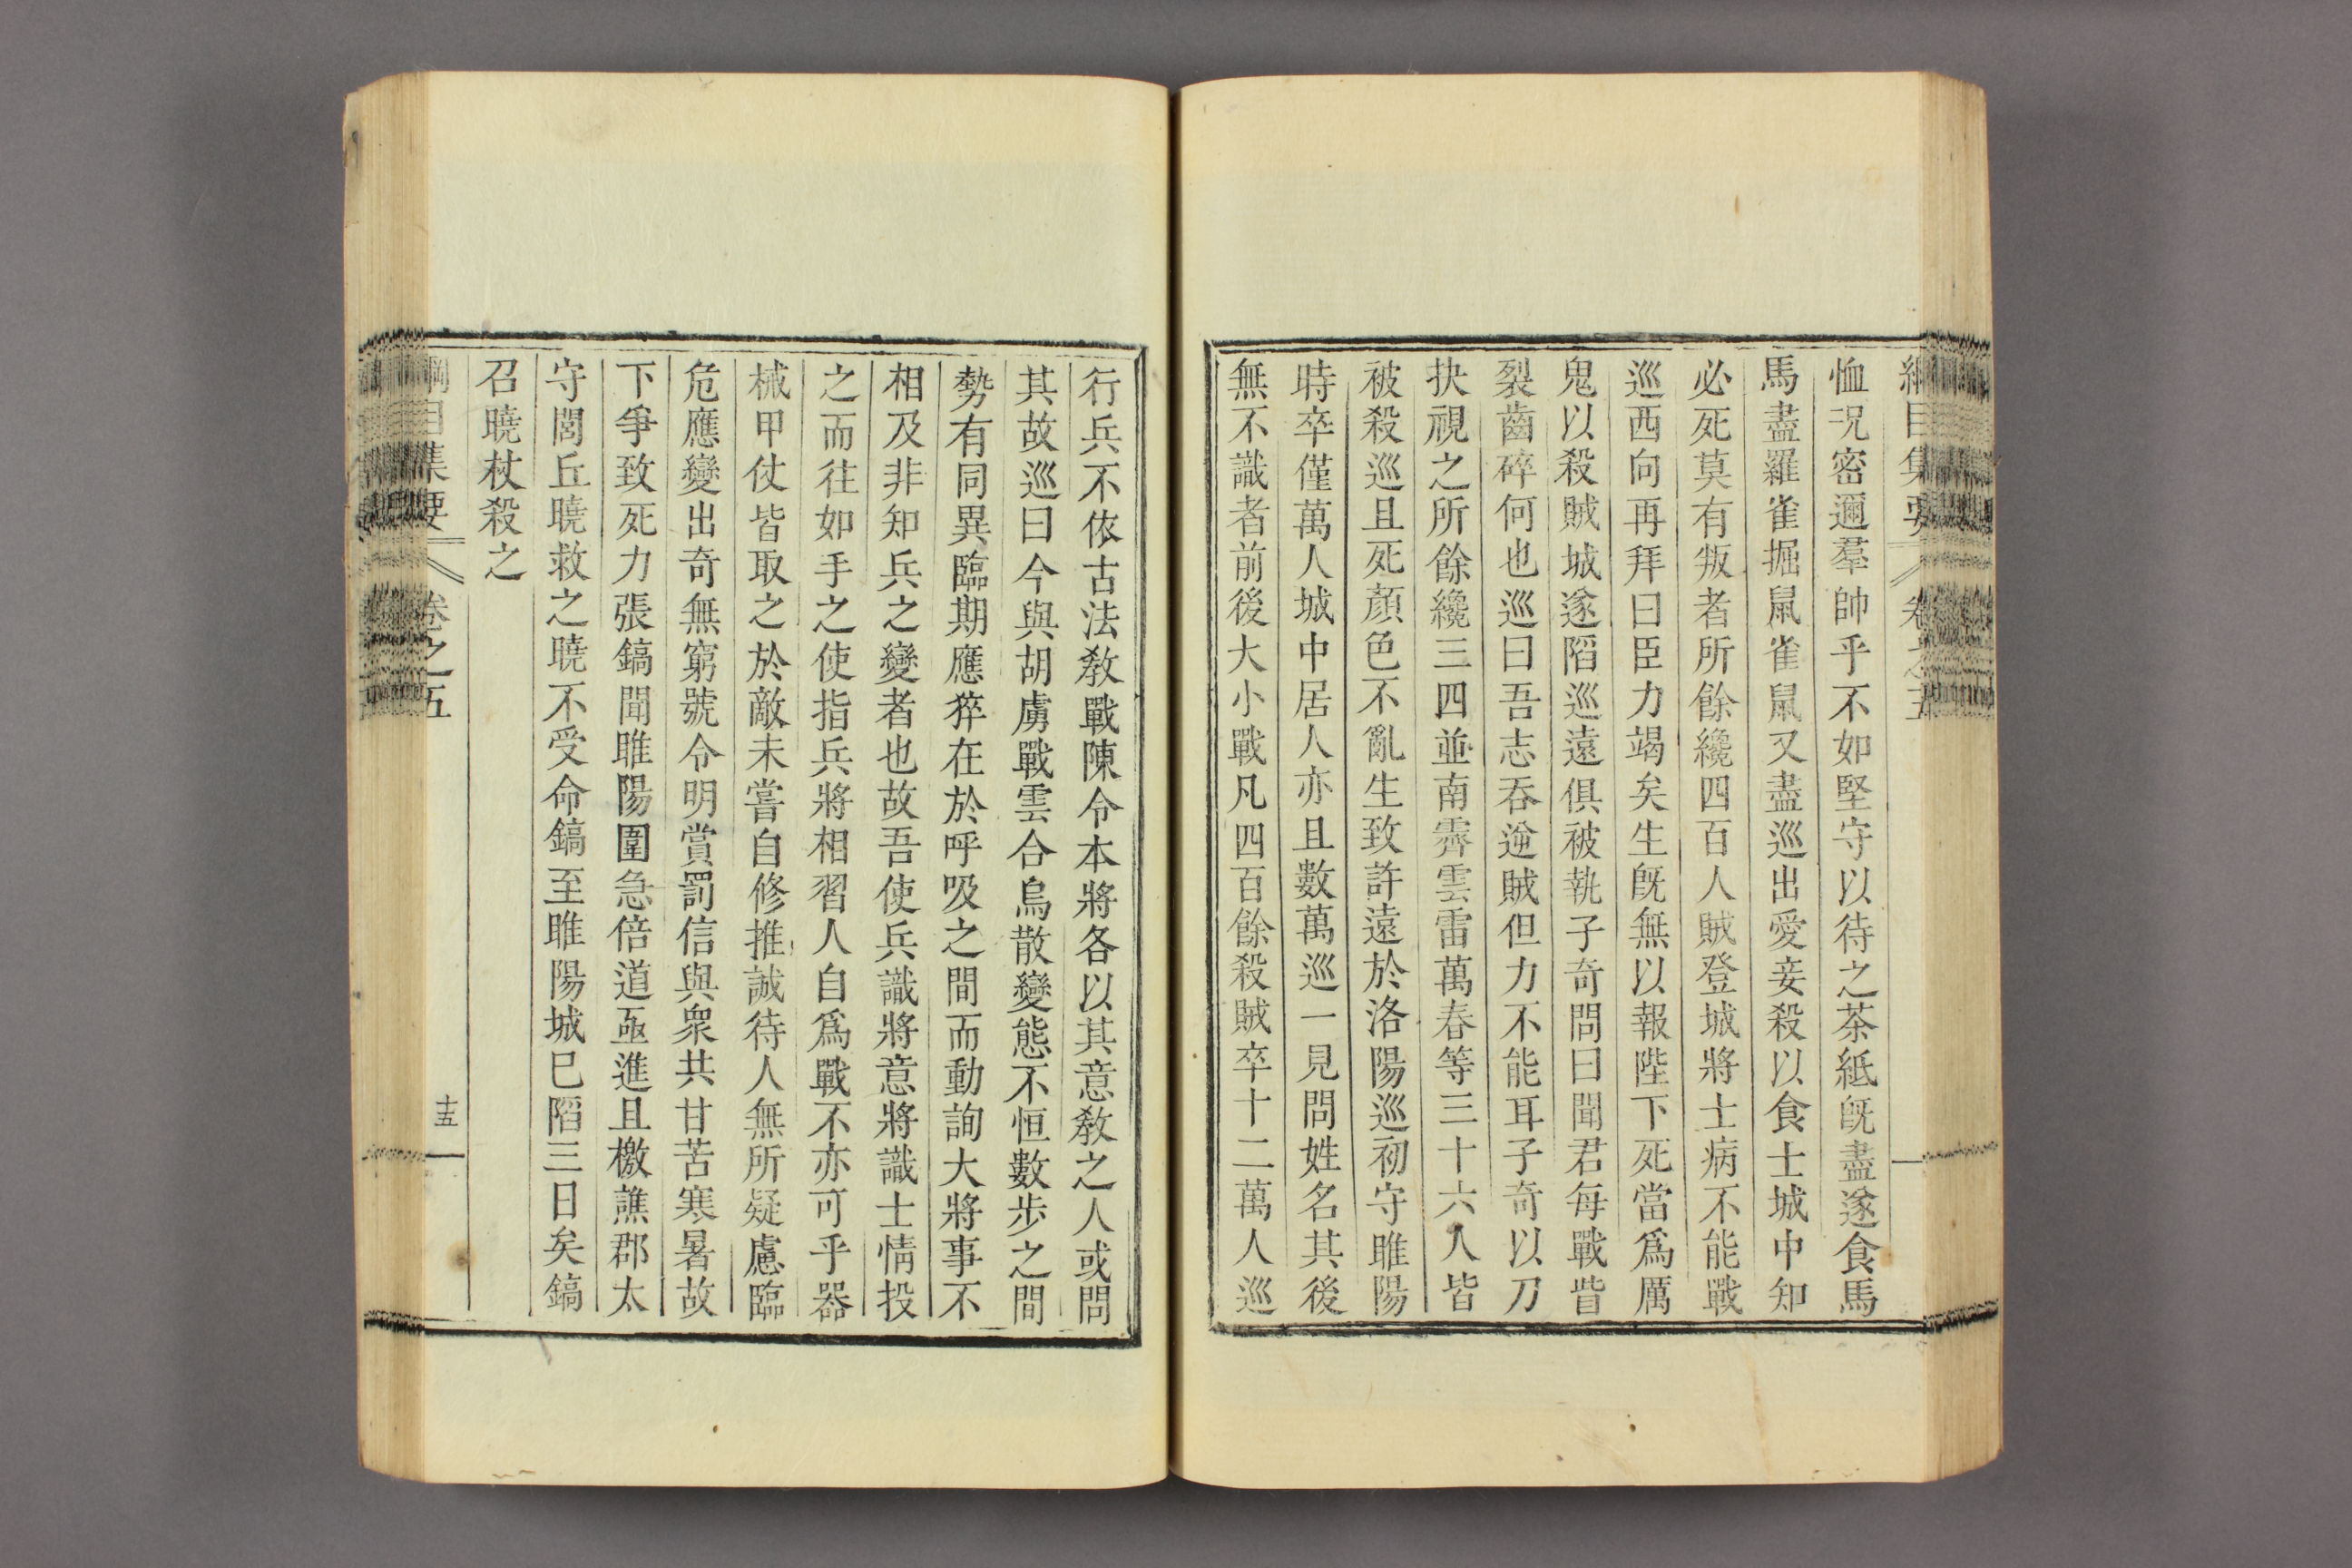 綱目集要 卷之五
恤况密邇羣帥乎不如堅守以待之茶紙旣盡遂食馬
馬盡羅雀掘鼠雀鼠又盡巡出愛妾殺以食士城中知
必死莫有叛者所餘纔四百人賊登城將士病不能戰
巡西向再拜曰臣力竭矣生旣無以報陛下死當爲厲
鬼以殺賊城遂陷巡遠俱被執子奇問曰聞君每戰眥
裂齒碎何也巡曰吾志吞逆賊但力不能耳子奇以刀
抉視之所餘纔三四並南霽雲雷萬春等三十六人皆
被殺巡且死顏色不亂生致許遠於洛陽巡初守睢陽
時卒僅萬人城中居人亦且數萬巡一見問姓名其後
無不識者前後大小戰凡四百餘殺賊卒十二萬人巡
行兵不依古法敎戰陳令本將各以其意敎之人或問
其故巡曰今與胡虜戰雲合烏散變態不恒數步之間
勢有同異臨期應猝在於呼吸之間而動詢大將事不
相及非知兵之變者也故吾使兵識將意將識士情投
之而往如手之使指兵將相習人自爲戰不亦可乎器
械甲仗皆取之於敵未嘗自修推誠待人無所疑慮臨
危應變出奇無窮號令明賞罰信與衆共甘苦寒暑故
下爭致死力張鎬聞睢陽圍急倍道亟進且檄譙郡太
守閭丘曉救之曉不受命鎬至睢陽城巳陷三日矣鎬
召曉杖殺之
綱目集要 卷之五 十五